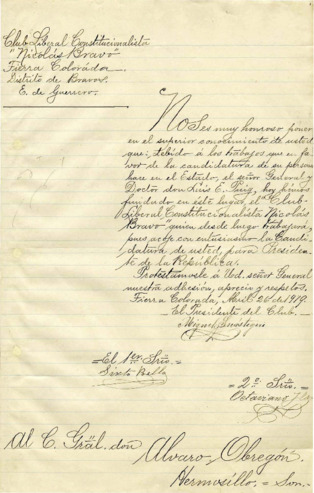 Club Liberal Constitucionalista
"Nicolás Bravo"
Tierra Colorada
Distrito de Bravos.
E. de Guerrero.
Nos es muy honroso poner
en el superior conocimiento de usted
que; debido á los trabajos que en fa-
vor de la candidatura de su persona
hace en el Estado, el señor General y
Doctor don Luis G. hoy hémos
fundado en este lugar, el "Club-
Liberal Constitucionalista Nicolás
Bravo" quien desde luego trabajará,
pues acoje con entusiasmo la Candi-
datura de usted, para Presiden-
te de la República.
Protestámosle á Ud. señor General
nuestra adhesión, aprecio y respetos.
Tierra Colorada, Abril 24 de 1919.
El Presidente del Club.
Miguel
=El 1er. Srio.=
Sixto
=2o. Srio.=
Octaviano
Al C. Gräl. don
Alvaro Obregón.
Hermosillo. = Son.-